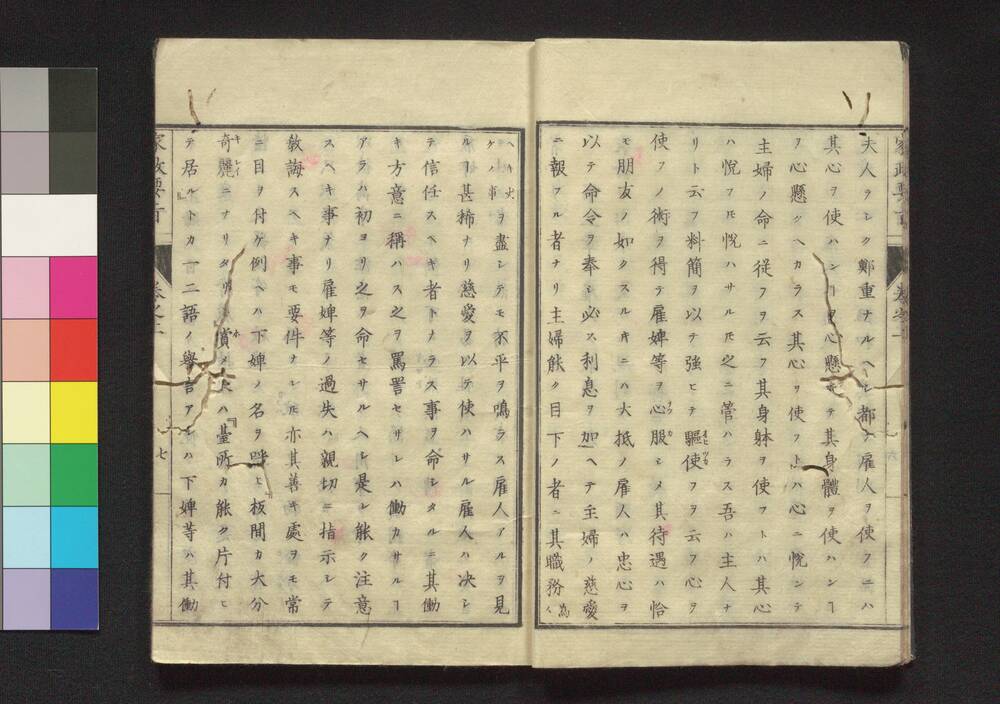 夫人ラシク鄭重ナルヘシ都テ雇人ヲ使フニハ
其心ヲ使ハンヿヲ心懸ケテ其身體ヲ使ハンヿ
ヲ心懸クヘカラス其心ヲ使フトハ心ニ悅ンテ
主婦ノ命ニ従フヲ云フ其身躰ヲ使フトハ其心
ハ悅フ𪜈悅ハサル𪜈之ニ管ハラス吾ハ主人ナ
リト云フ料簡ヲ以テ強ヒテ驅使フヲ云フ心ヲ
使フノ術ヲ得テ雇婢等ヲ心服シメ其待遇ハ恰
モ朋友ノ如クスルキニハ大抵ノ雇人ハ忠心ヲ
以テ命令ヲ奉シ必ス利息ヲ加ヘテ主婦ノ慈愛
ニ報フル者ナリ主婦能ク目下ノ者ニ其職務
ヲ盡シテモ不平ヲ鳴ラス雇人アルヲ見
ルヿ甚稀ナリ慈愛ヲ以テ使ハサル雇人ハ决シ
テ信任スヘキ者トナラス事ヲ命シタルニ其働
キ方意ニ稱ハス之ヲ罵詈セサレハ働カサルヿ
アラハ初ヨリ之ヲ命セサルヘシ是レ能ク注意
スヘキ事ナリ雇婢等ノ過失ハ親切ニ指示シテ
敎誨スヘキ事モ要件ナレ𪜈亦其善キ處ヲモ常
ニ目ヲ付ケ例ヘハ下婢ノ名ヲ呼ヒ板間カ大分
奇麗ニナリタリト賞メ又ハ臺所カ能ク片付ヒ
テ居ルトカ一二語ノ譽言アレハ下婢等ハ其働
家政要旨
七